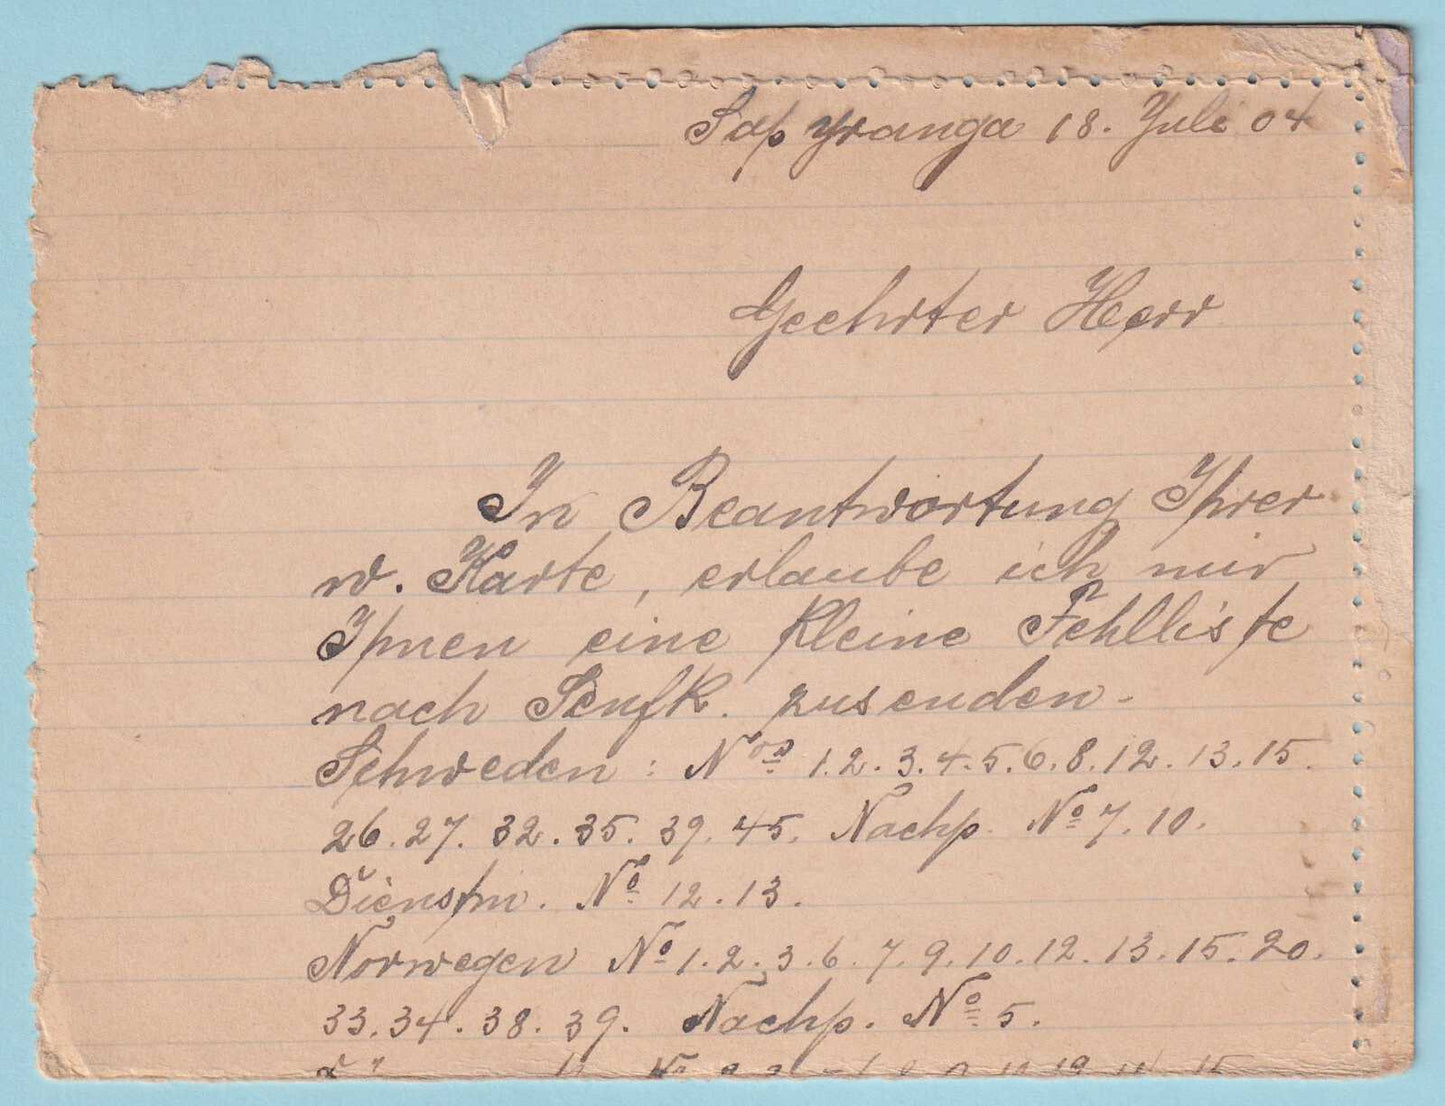 Sapyranga 18. Juli 04
Geehrter Herr
In Beantwortung Ihrer
w. Karte, erlaube ich mir
Ihnen eine kleine Fehlliste
nach Senfk. zusenden.
Schweden: Nos 1.2.3.4.5.6.8.12.13.15.
26.27.32.35.39.45. Nachp. No 7.10.
Dienstm. No 12.13.
Norwegen No 1.2.3.6.7.9.10.12.13.15.20.
33.34.38.39. Nachp. No 5.